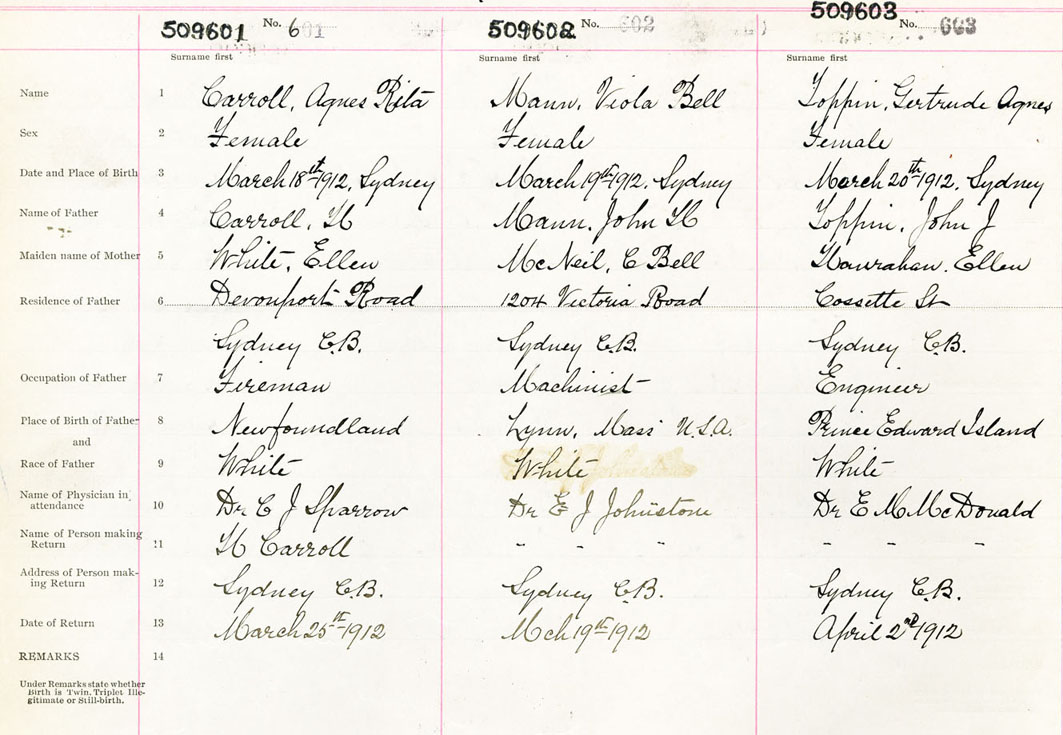 509601 No. 601 509602 No. 602 509603 No. 603
Surname first Surname first Surname first
Name 1 Carroll, Agnes Rita Mann, Viola Bell Toppin, Gertrude Agnes
Sex 2 Female Female Female
Date and Place of Birth 3 March 18th 1912, Sydney March 19th 1912, Sydney March 20th 1912, Sydney
Name of Father 4 Carroll, H Mann, John H Toppin, John J
Maiden name of Mother 5 White, Ellen McNeil, C Bell Hourahan, Ellen
Residence of Father 6 Devonport Road 1204 Victoria Road Cossette St
Sydney C.B. Sydney C.B. Sydney C.B.
Occupation of Father 7 Fireman Machinist Engineer
Place of Birth of Father 8 Newfoundland Lynn, Mass U.S.A. Prince Edward Island
and
Race of Father 9 White White White
Name of Physician in attendance 10 Dr C J Sparrow Dr E J Johnstone Dr E M McDonald
Name of Person making Return 11 H Carroll - - - - - -
Address of Person mak-
ing Return 12 Sydney C.B. Sydney C.B. Sydney C.B.
Date of Return 13 March 25th 1912 Mch 19th 1912 April 2nd 1912
REMARKS 14
Under Remarks state whether
Birth is Twin, Triplet Ille-
gitimate or Still-birth.